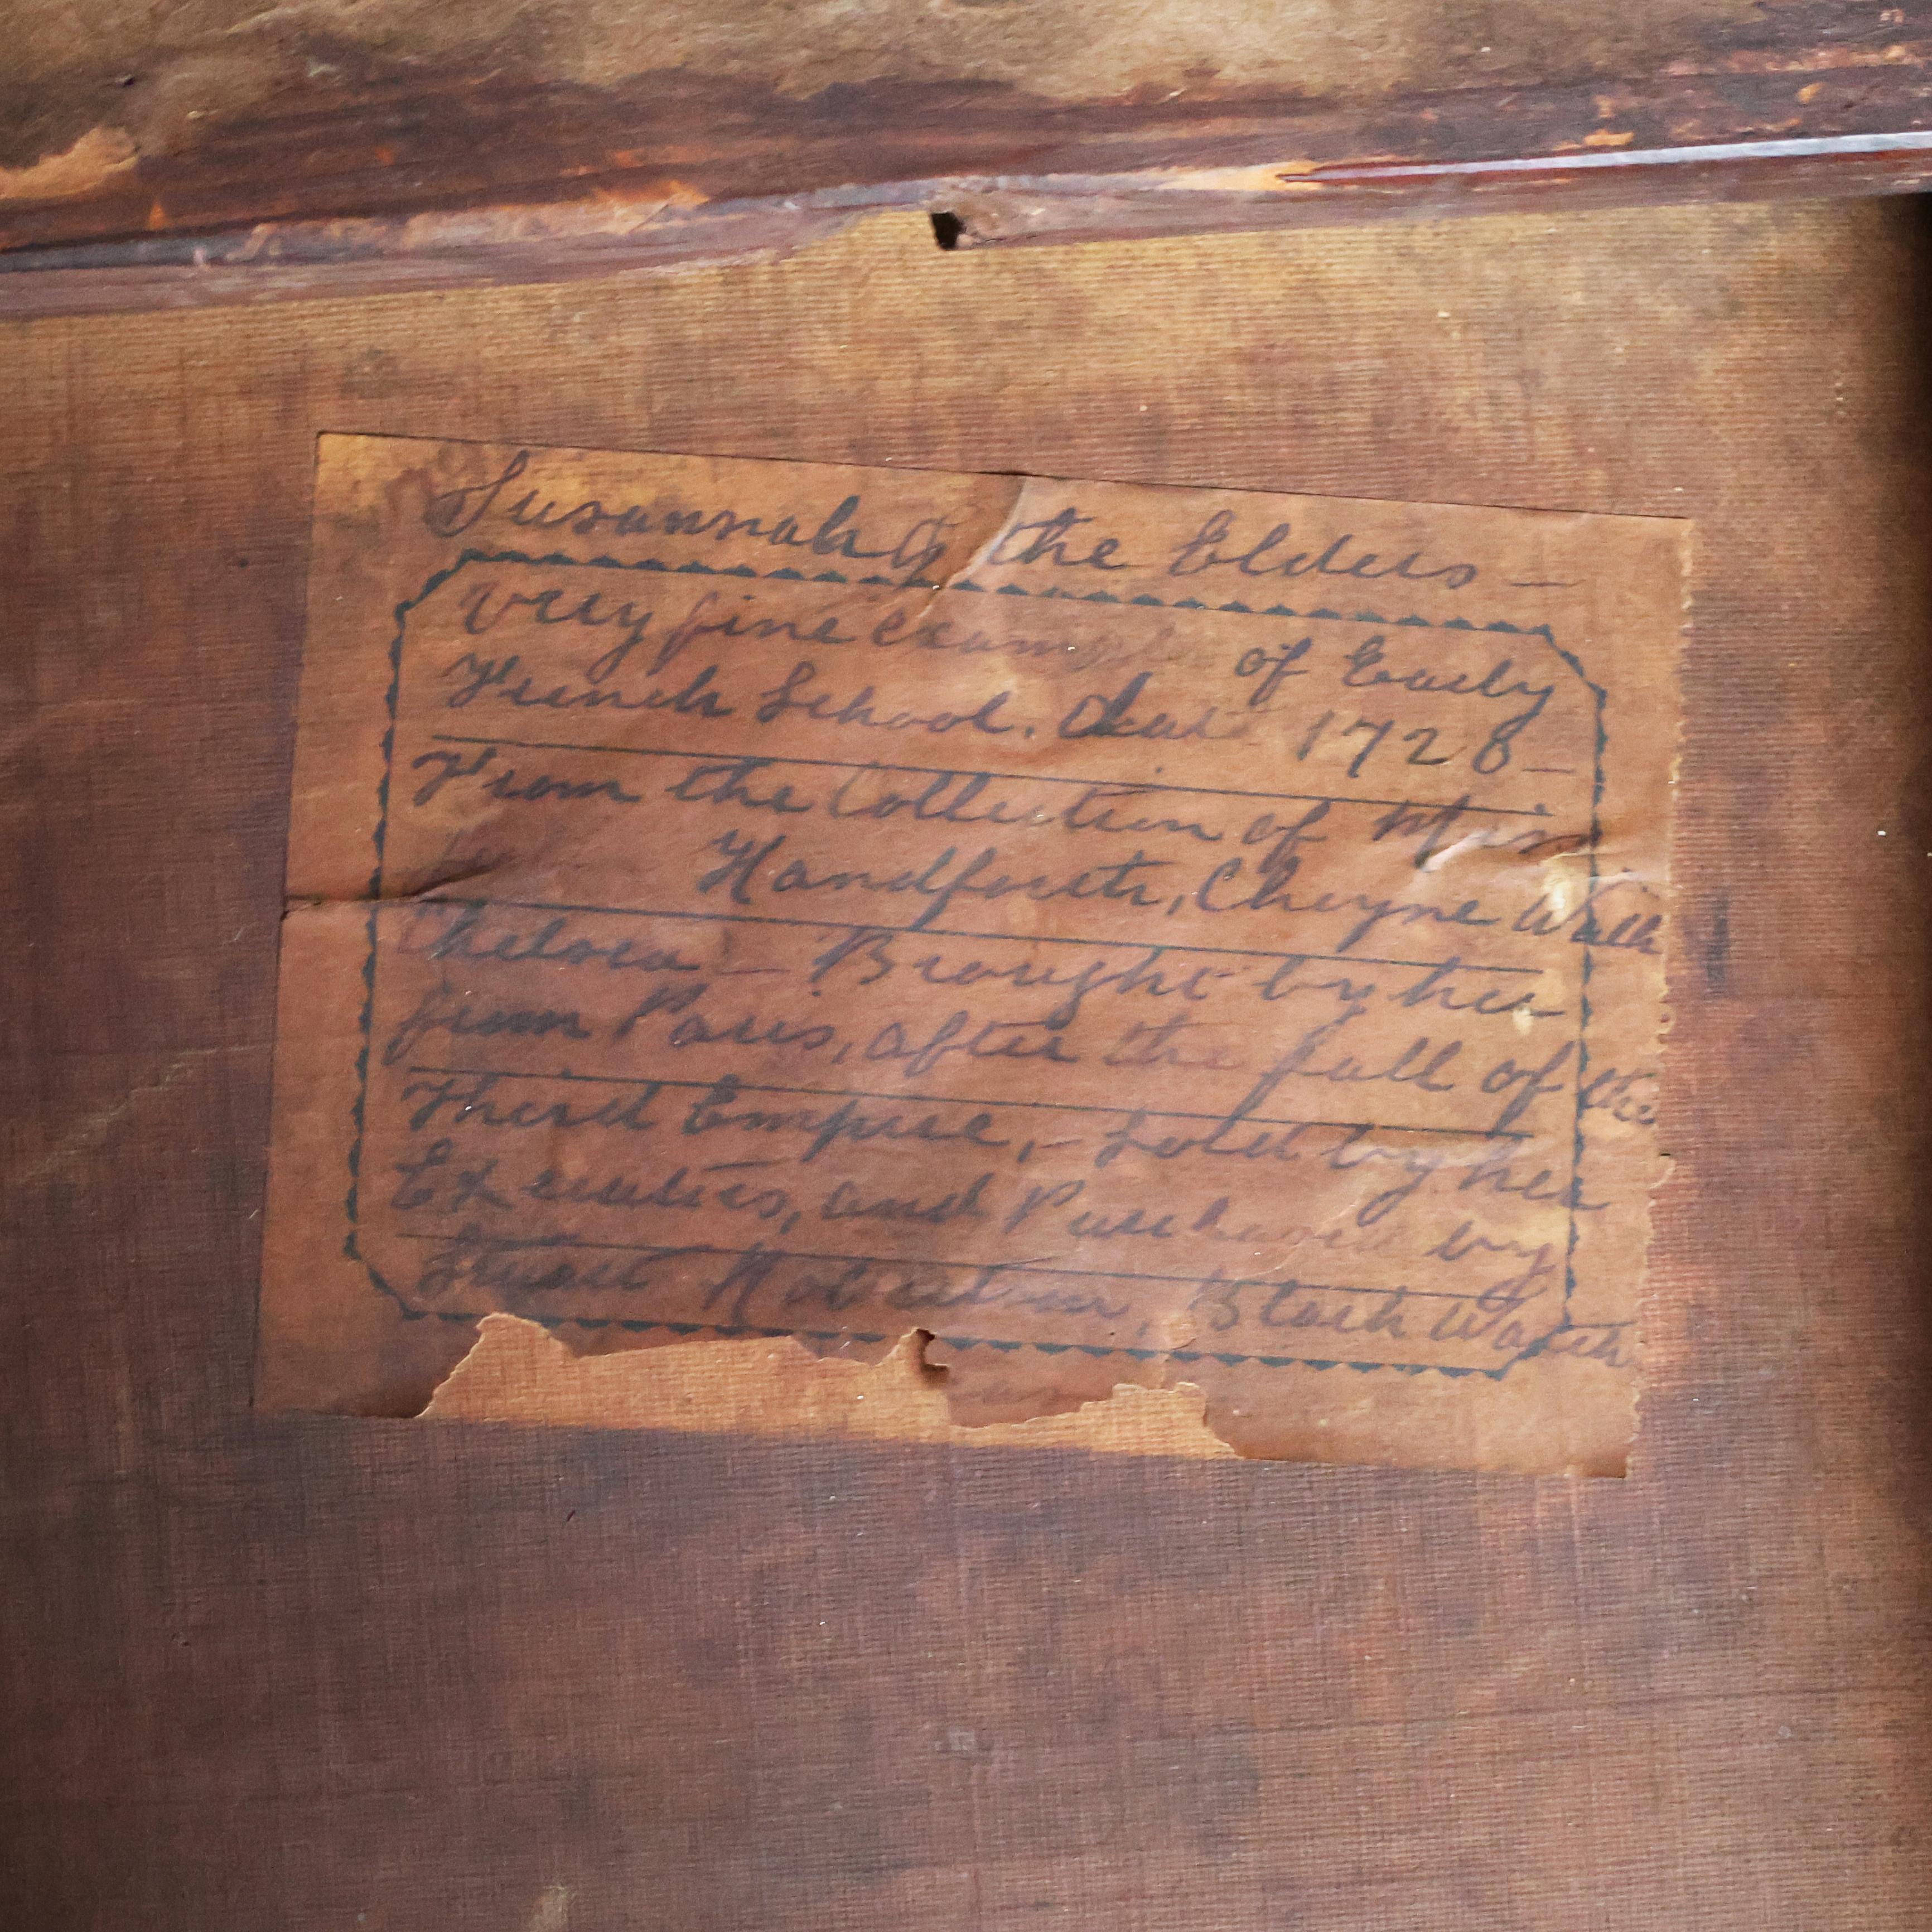 Susannah & the Elders —
Very fine example of Early
French School. Date 1728 —
From the Collection of Miss
Handforth, Cheyne Walk
Chelsea, — Brought by her
from Paris, after the fall of the
Third Empire, — Sold by her
Executors, and Purchased by
Stuart Robertson, Black Watch